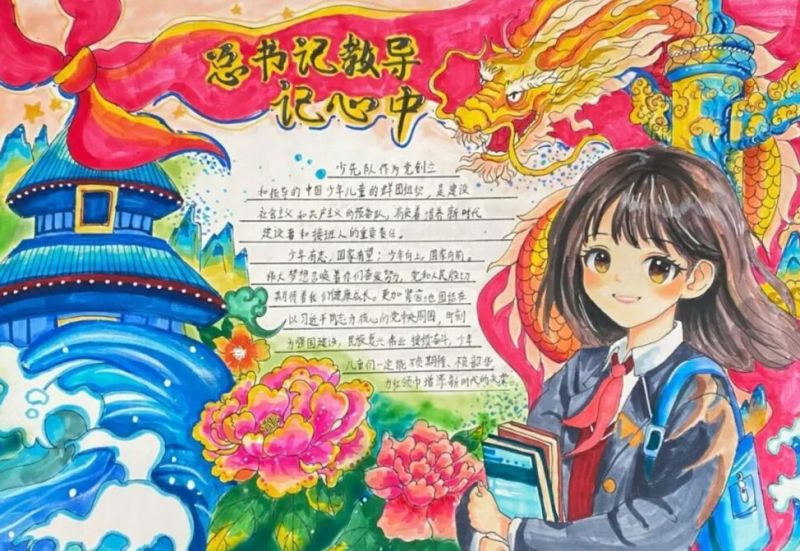 总书记教导
记心中
少先队作为党创立
和领导的中国少年儿童的群团组织，是建设
社会主义和共产主义的预备队，肩负着培养新时代
建设者和接班人的重要责任。
少年有志，国家有望；少年向上，国家向前。
伟大梦想召唤着你们奋发努力，党和人民殷切
期待着我们健康成长。更加紧密地团结在
以习近平同志为核心的党中央周围，时刻
为强国建设，民族复兴伟业接续奋斗，少年
儿童们一定能不负期待、不负韶华
为红领巾增添新时代的光荣。